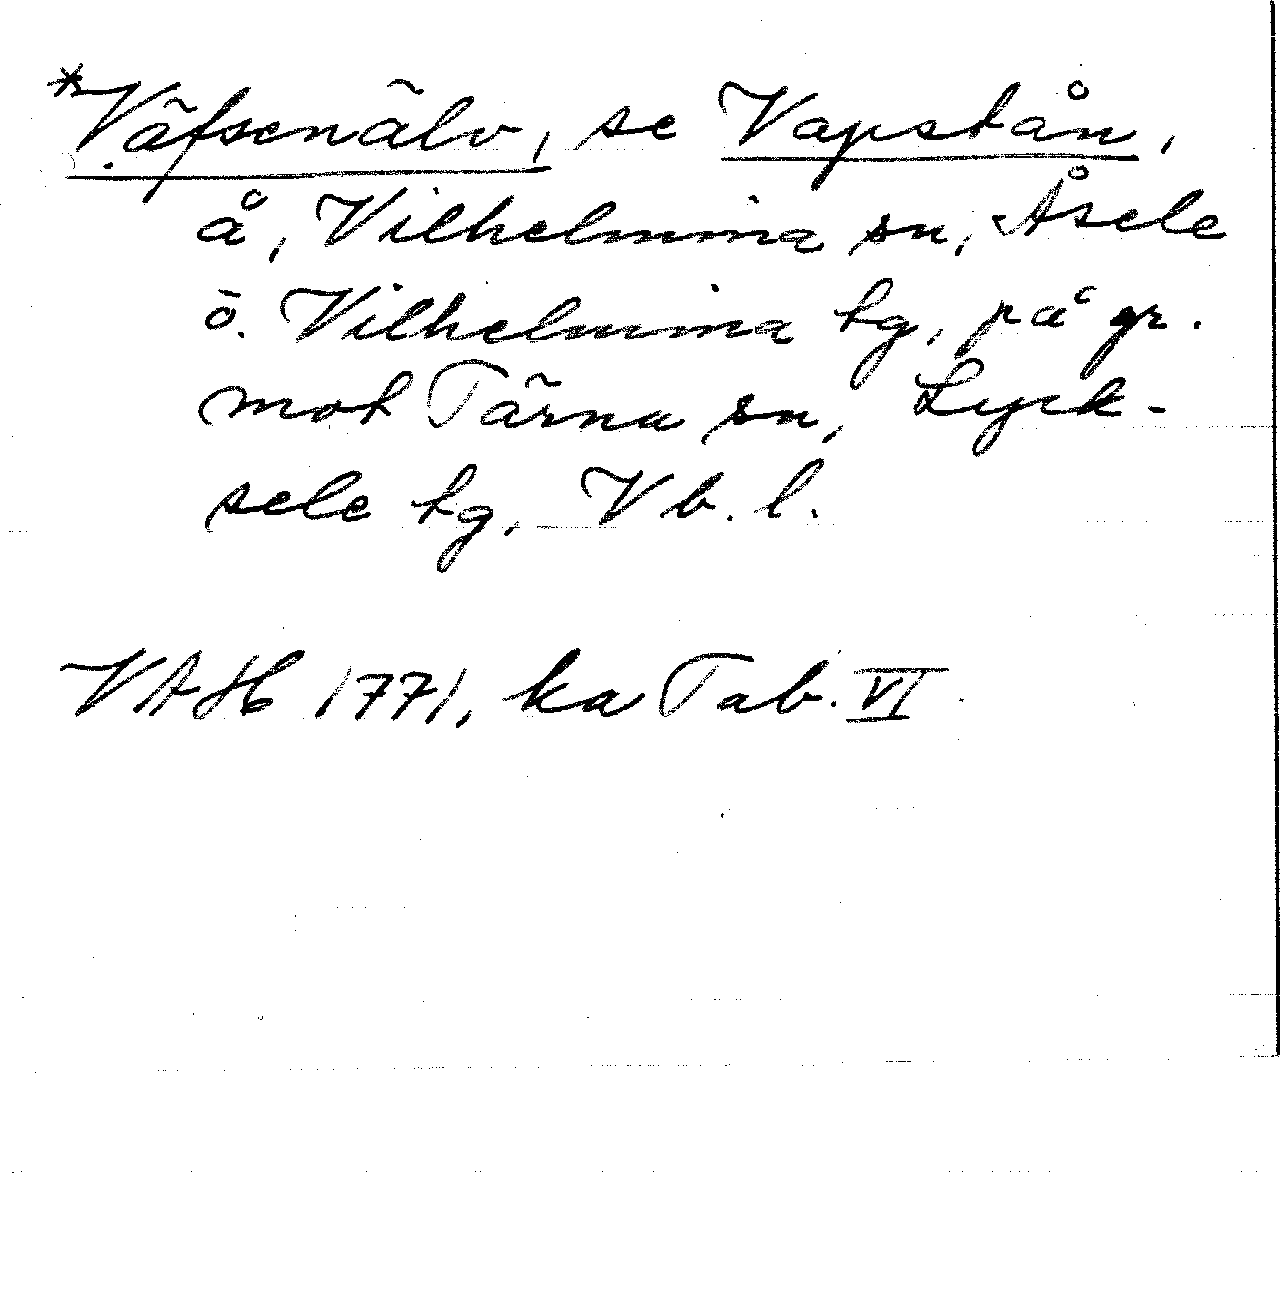 *Väfsenälv, se Vapstån,
å, Vilhelmina sn, Åsele
o. Vilhelmina tg, på gr.
mot Tärna sn, Lyck-
sele tg, Vb. l.
VAH 1771, ka Tab. VI